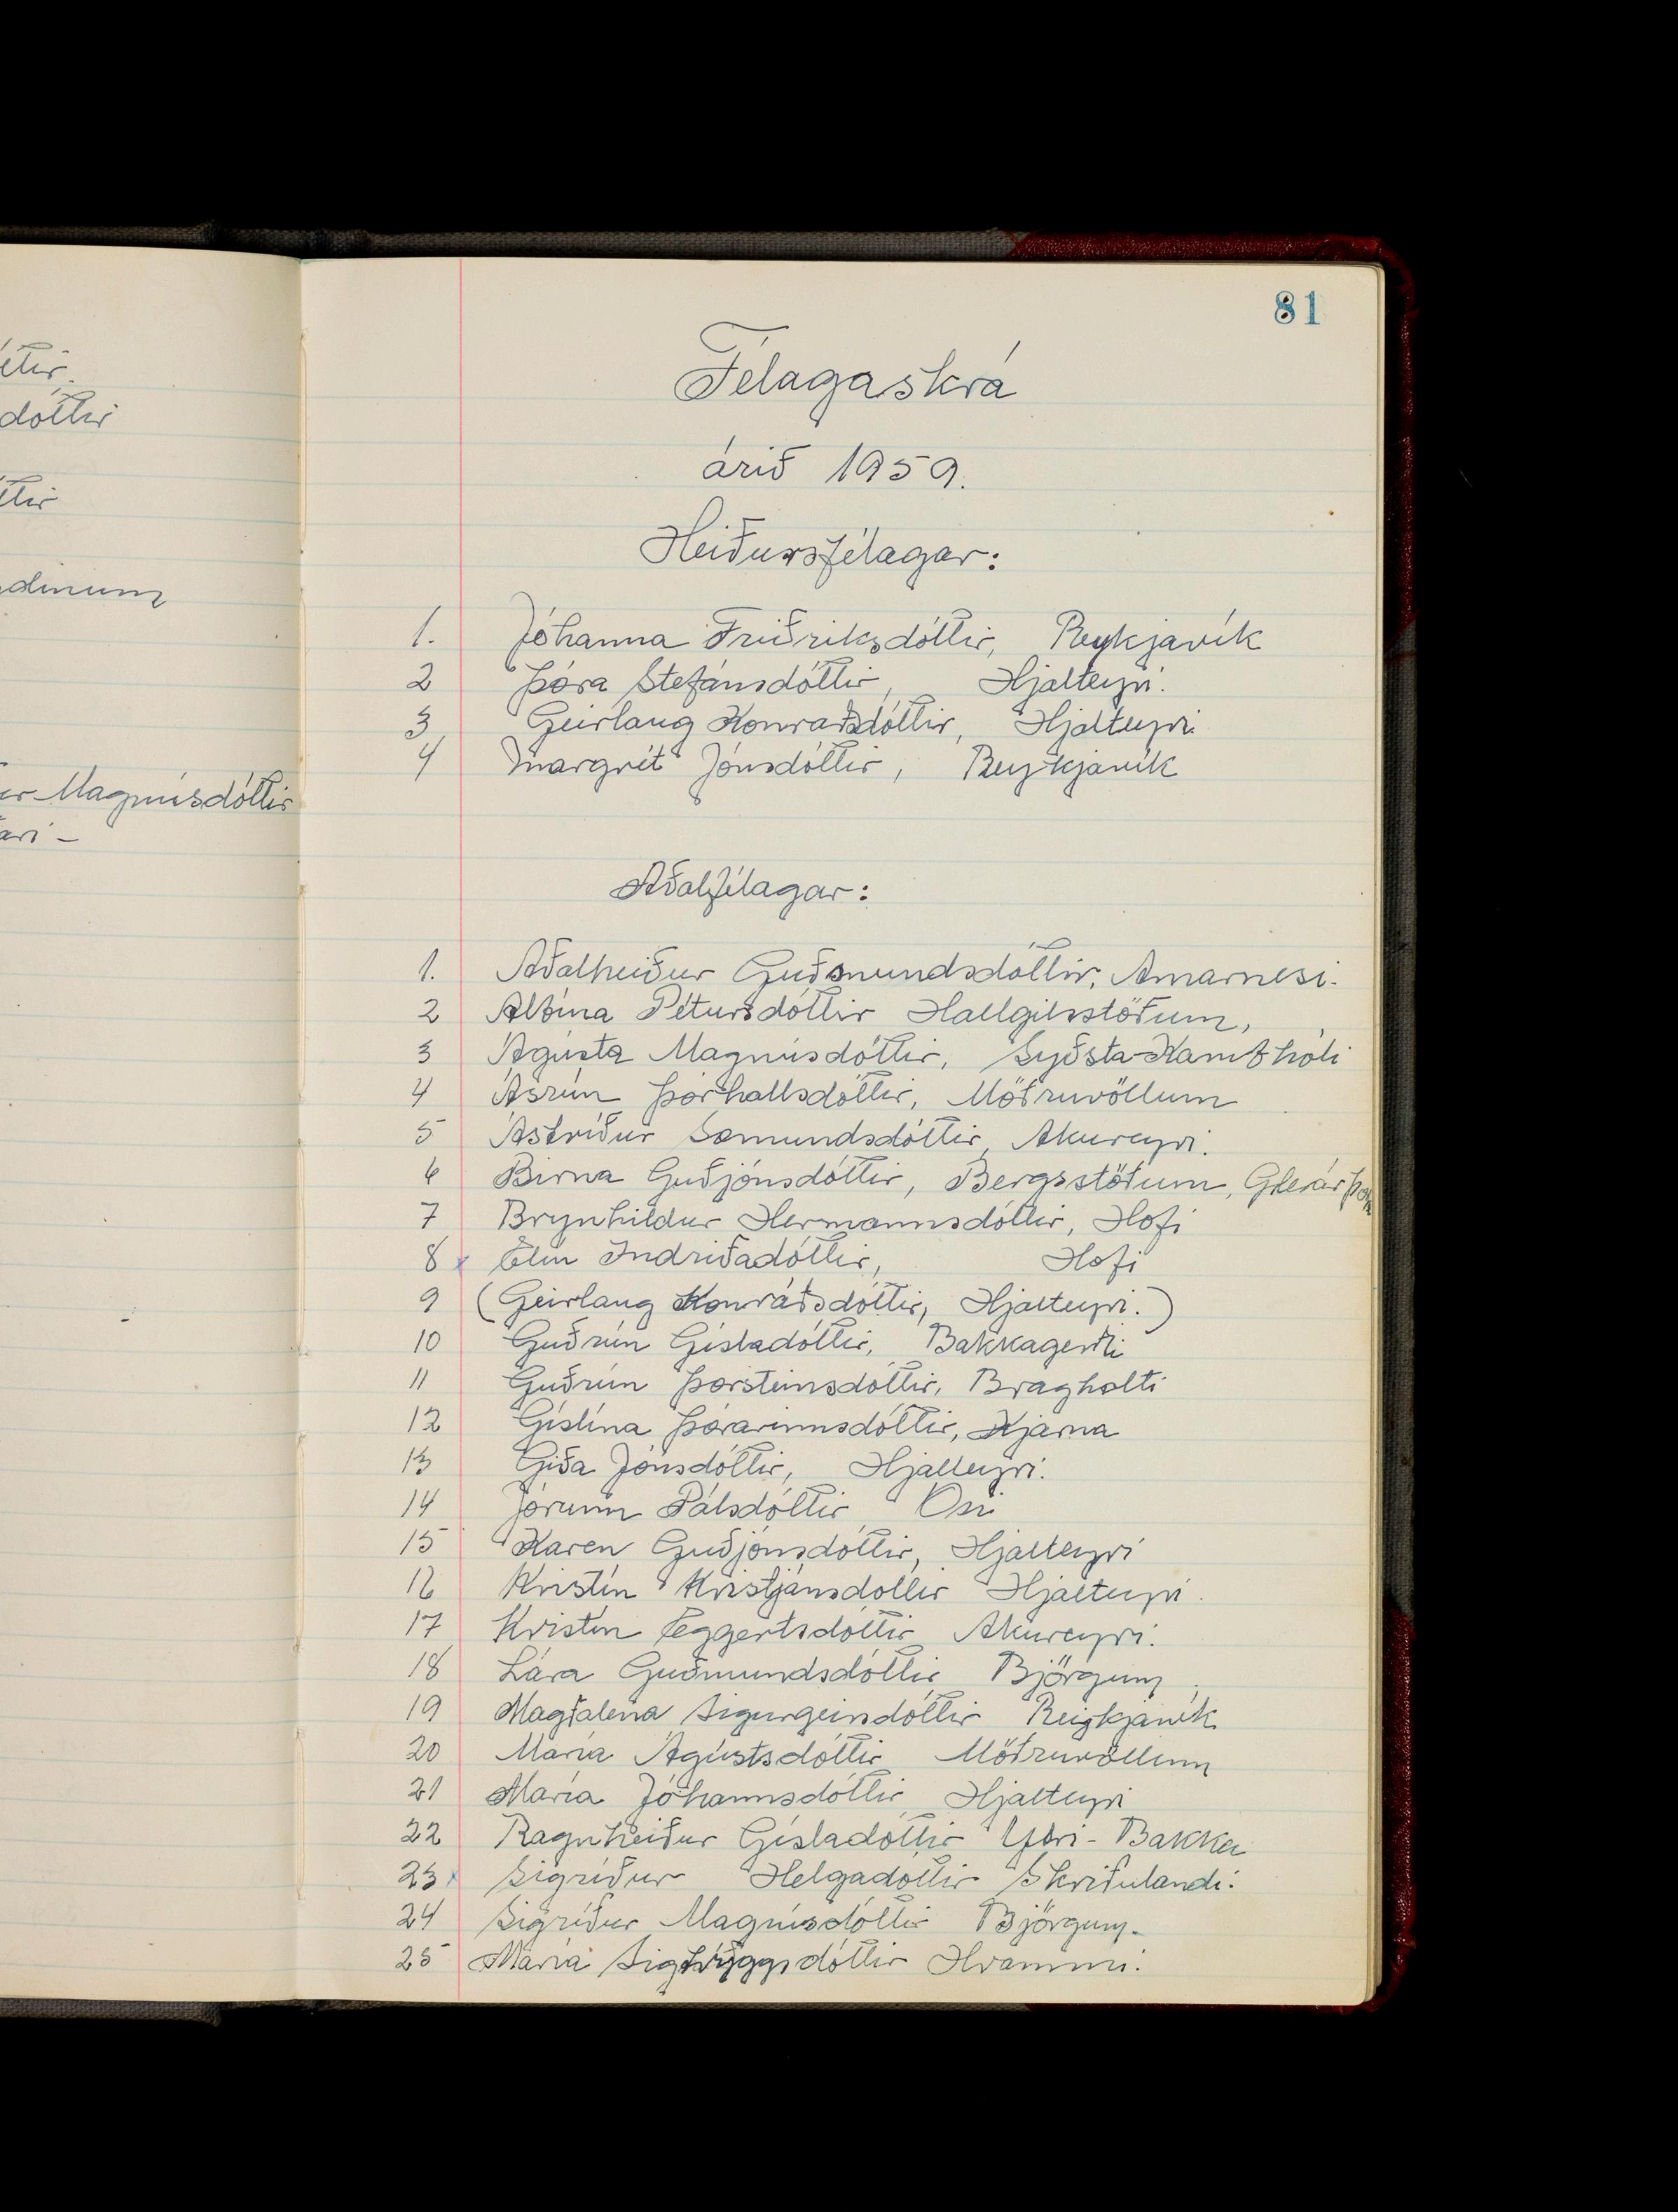 étir.
dóttir
ttir
dinum
er Magnúsdóttir
ari -
81
Félagaskrá
árið 1959.
Heiðursfélagar:
1. Jóhanna Friðriksdóttir, Reykjavík
2 Þóra Stefánsdóttir, Hjalteyri.
3 Geirlaug Konraðsdóttir, Hjalteyri
4 Margrét Jónsdóttir, Reykjavík
Aðalfélagar:
1. Aðalheiður Guðmundsdóttir, Arnarnesi.
2 Albína Pétursdóttir Hallgilsstöðum,
3 Ágústa Magnúsdóttir, Syðsta-Kambhóli
4 Ásrún Þórhallsdóttir, Möðruvöllum
5 Ástríður Sæmundsdóttir, Akureyri.
6 Birna Guðjónsdóttir, Bergsstöðum, Glerárþorp
7 Brynhildur Hermannsdóttir, Hofi
8 x Elín Indriðadóttir, Hofi
9 (Geirlaug Konráðsdóttir, Hjalteyri.)
10 Guðrún Gísladóttir, Bakkagerði
11 Guðrún Þorsteinsdóttir, Bragholti
12 Gíslína Þórarinnsdóttir, Kjarna
13 Gíða Jónsdóttir, Hjalteyri.
14 Jórunn Pálsdóttir Ósi
15 Karen Guðjónsdóttir, Hjalteyri
16 Kristín Kristjánsdóttir Hjalteyri.
17 Kristín Eggertsdóttir Akureyri.
18 Lára Guðmundsdóttir Björgum
19 Magðalena Sigurgeirsdóttir Reigkjavík
20 María Ágústsdóttir Möðruvöllum
21 María Jóhannsdóttir Hjalteyri
22 Ragnheiður Gísladóttir Ytri-Bakka
23 x Sigríður Helgadóttir Skriðulandi.
24 Sigríður Magnúsdóttir Björgum.
25 María Sigtryggsdóttir Hvammi.